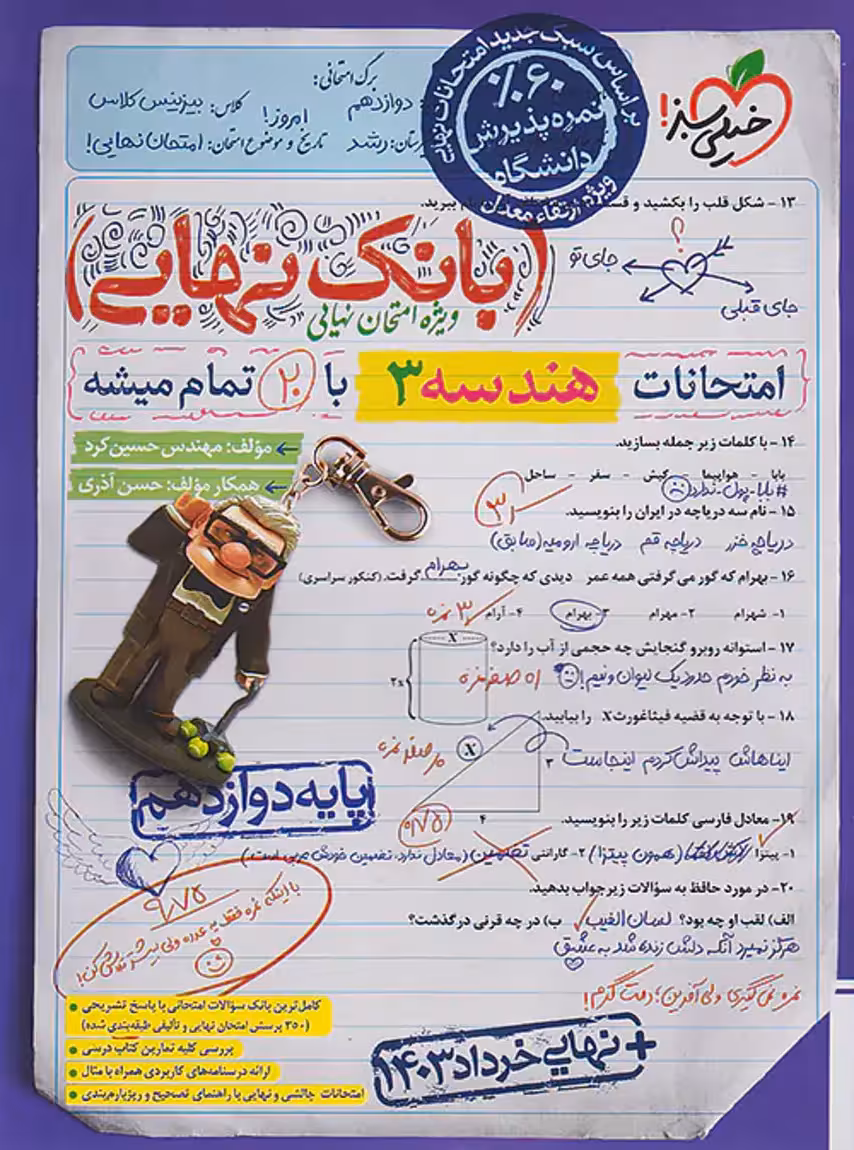 خیلی سبز!
براساس سبک جدید امتحانات نهایی
%۶۰
نمره پذیرش
دانشگاه
ویژه ارتقاء معدل
برگ امتحانی:
دوازدهم
کلاس: بیزینس کلاس
امروز!
رشد
تاریخ و موضوع امتحان: امتحان نهایی!
۱۳ - شکل قلب را بکشید و
ببرید.
؟
جای تو
جای قبلی
(بانک نهایی)
ویژه امتحان نهایی
امتحانات هندسه ۳ با ۲۰ تمام میشه
مؤلف: مهندس حسین کرد
همکار مؤلف: حسن آذری
۱۴ - با کلمات زیر جمله بسازید.
بابا - هواپیما - کیش - سفر - ساحل
#بابا-پول-ندارد
۱۵ - نام سه دریاچه در ایران را بنویسید.
دریاچه خزر دریاچه قم دریاچه ارومیه (سابق)
۱۶ - بهرام که گور می‌گرفتی همه عمر دیدی که چگونه گور بهرام گرفت. (کنکور سراسری)
۱- شهرام ۲- مهرام ۳- بهرام ۴- آرام
۱۷ - استوانه روبرو گنجایش چه حجمی از آب را دارد؟
X
۲x
به نظر خودم حدود یک لیوان و نیم!
۱۸ - با توجه به قضیه فیثاغورث X را بیابید.
X
۳
۴
ایناهاش پیداش کردم اینجاست
۱۹- معادل فارسی کلمات زیر را بنویسید.
۱- پیتزا (همون پیتزا) ۲- گارانتی تضمین (معادل ندارد، تضمین خودش عربی است.)
۲۰- در مورد حافظ به سؤالات زیر جواب بدهید.
الف) لقب او چه بود؟ لسان الغیب ب) در چه قرنی درگذشت؟
هرگز نمیرد آنکه دلش زنده شد به عشق
نمره نمی‌گیری ولی آفرین؛ دمت گرم!
پایه دوازدهم
۹/۷۵
با اینکه نمره فقط یه عدده ولی بیشتر تلاش کن!
کامل‌ترین بانک سؤالات امتحانی با پاسخ تشریحی
(۳۵۰ پرسش امتحان نهایی و تألیفی طبقه‌بندی شده)
بررسی کلیه تمارین کتاب درسی
ارائه درسنامه‌های کاربردی همراه با مثال
امتحانات چالشی و نهایی با راهنمای تصحیح و ریزبارم‌بندی
+ نهایی خرداد ۱۴۰۳